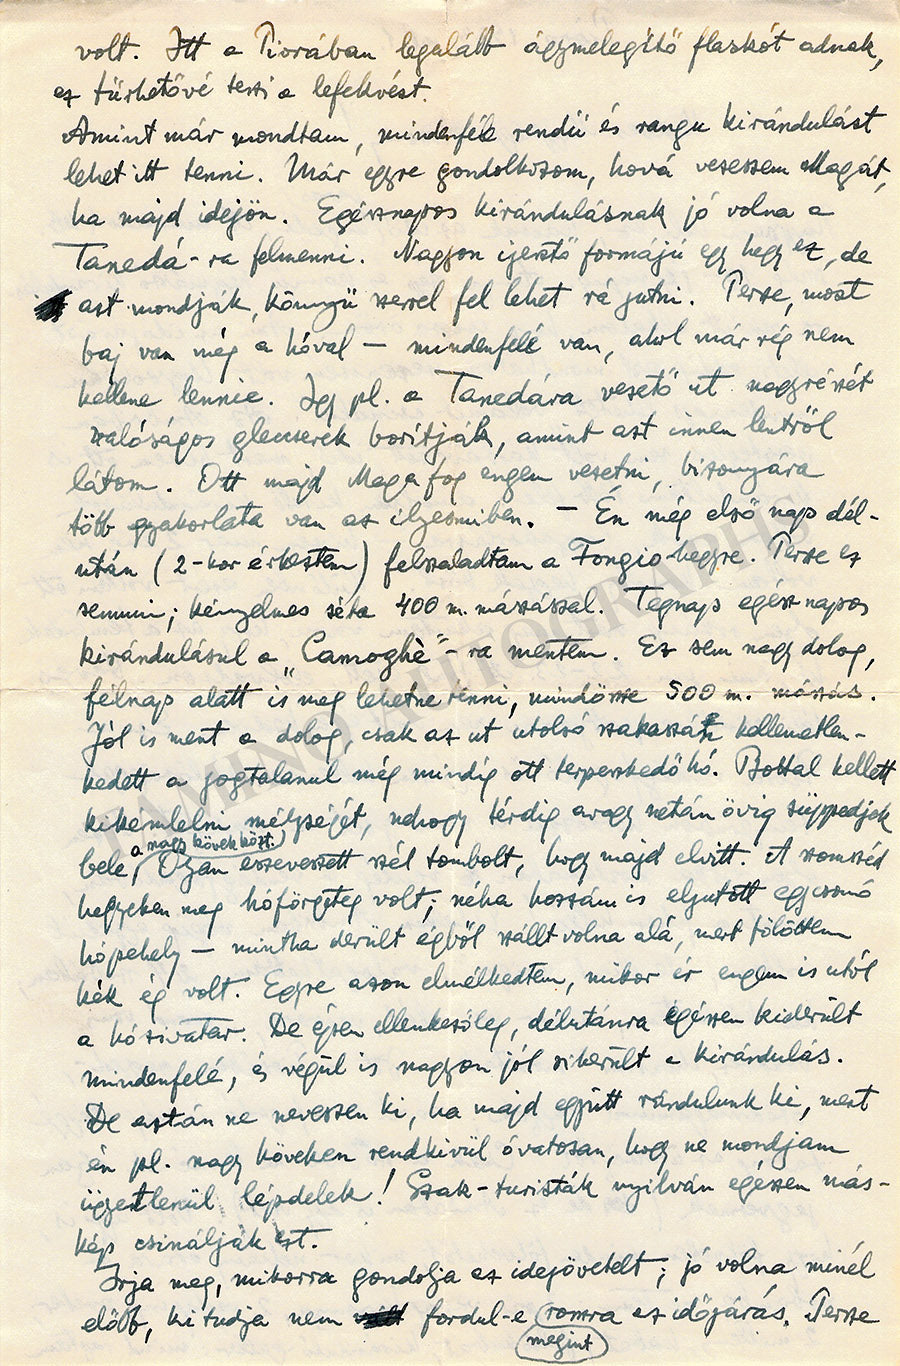 volt. Itt a Piorában legalább ágymelegítő flaskót adnak,
ez türhetővé teszi a lefekvést.
Amint már mondtam, mindenféle rendű és rangu kirándulást
lehet itt tenni. Már egyre gondolkozom, hová vezessem Magát,
ha majd idejön. Egésznapos kirándulásnak jó volna a
Tanedá-ra felmenni. Nagyon ijesztő formájú egy hegy ez, de
azt mondják, könnyü szerrel fel lehet rá jutni. Persze, most
baj van még a hóval — mindenfelé van, ahol már rég nem
kellene lennie. Igy pl. a Tanedára vezető ut nagyrészét
valóságos gleccserek borítják, amint azt innen lentről
látom. Ott majd Maga fog engem vezetni, bizonyára
több gyakorlata van az ilyesmiben. — Én még első nap dél-
után (2-kor érkeztem) felszaladtam a Fongio hegyre. Persze ez
semmi; kényelmes séta 400 m. mászással. Tegnap egész napos
kirándulásul a „Camoghè"-ra mentem. Ez sem nagy dolog,
félnap alatt is meg lehetne tenni, mindössze 500 m. mászás.
Jól is ment a dolog, csak az ut utolsó szakaszán kellemetlen-
kedett a jogtalanul még mindig ott terpeszkedő hó. Bottal kellett
kikémlelni mélységét, nehogy térdig avagy netán övig süppedjek
bele, a nagy kövek közt. Olyan eszeveszett szél tombolt, hogy majd elvitt. A szomszéd
hegyeken meg hóförgeteg volt; néha hozzám is eljutott egycsomó
hópehely — mintha derült égből szállt volna alá, mert fölöttem
kék ég volt. Egyre azon elmélkedtem, mikor ér engem is utól
a hózivatar. De éppen ellenkezőleg, délutánra egészen kiderült
mindenfelé, és végül is nagyon jól sikerült a kirándulás.
De aztán ne nevessen ki, ha majd együtt rándulunk ki, mert
én pl. nagy köveken rendkívül óvatosan, hogy ne mondjam
ügyetlenül lépdelek! Szak-turisták nyilván egészen más-
kép csinálják ezt.
Irja meg, mikorra gondolja az idejövetelt; jó volna minél
előbb, ki tudja nem fordul-e megint rosszra az időjárás. Persze
TAMINO AUTOGRAPHS